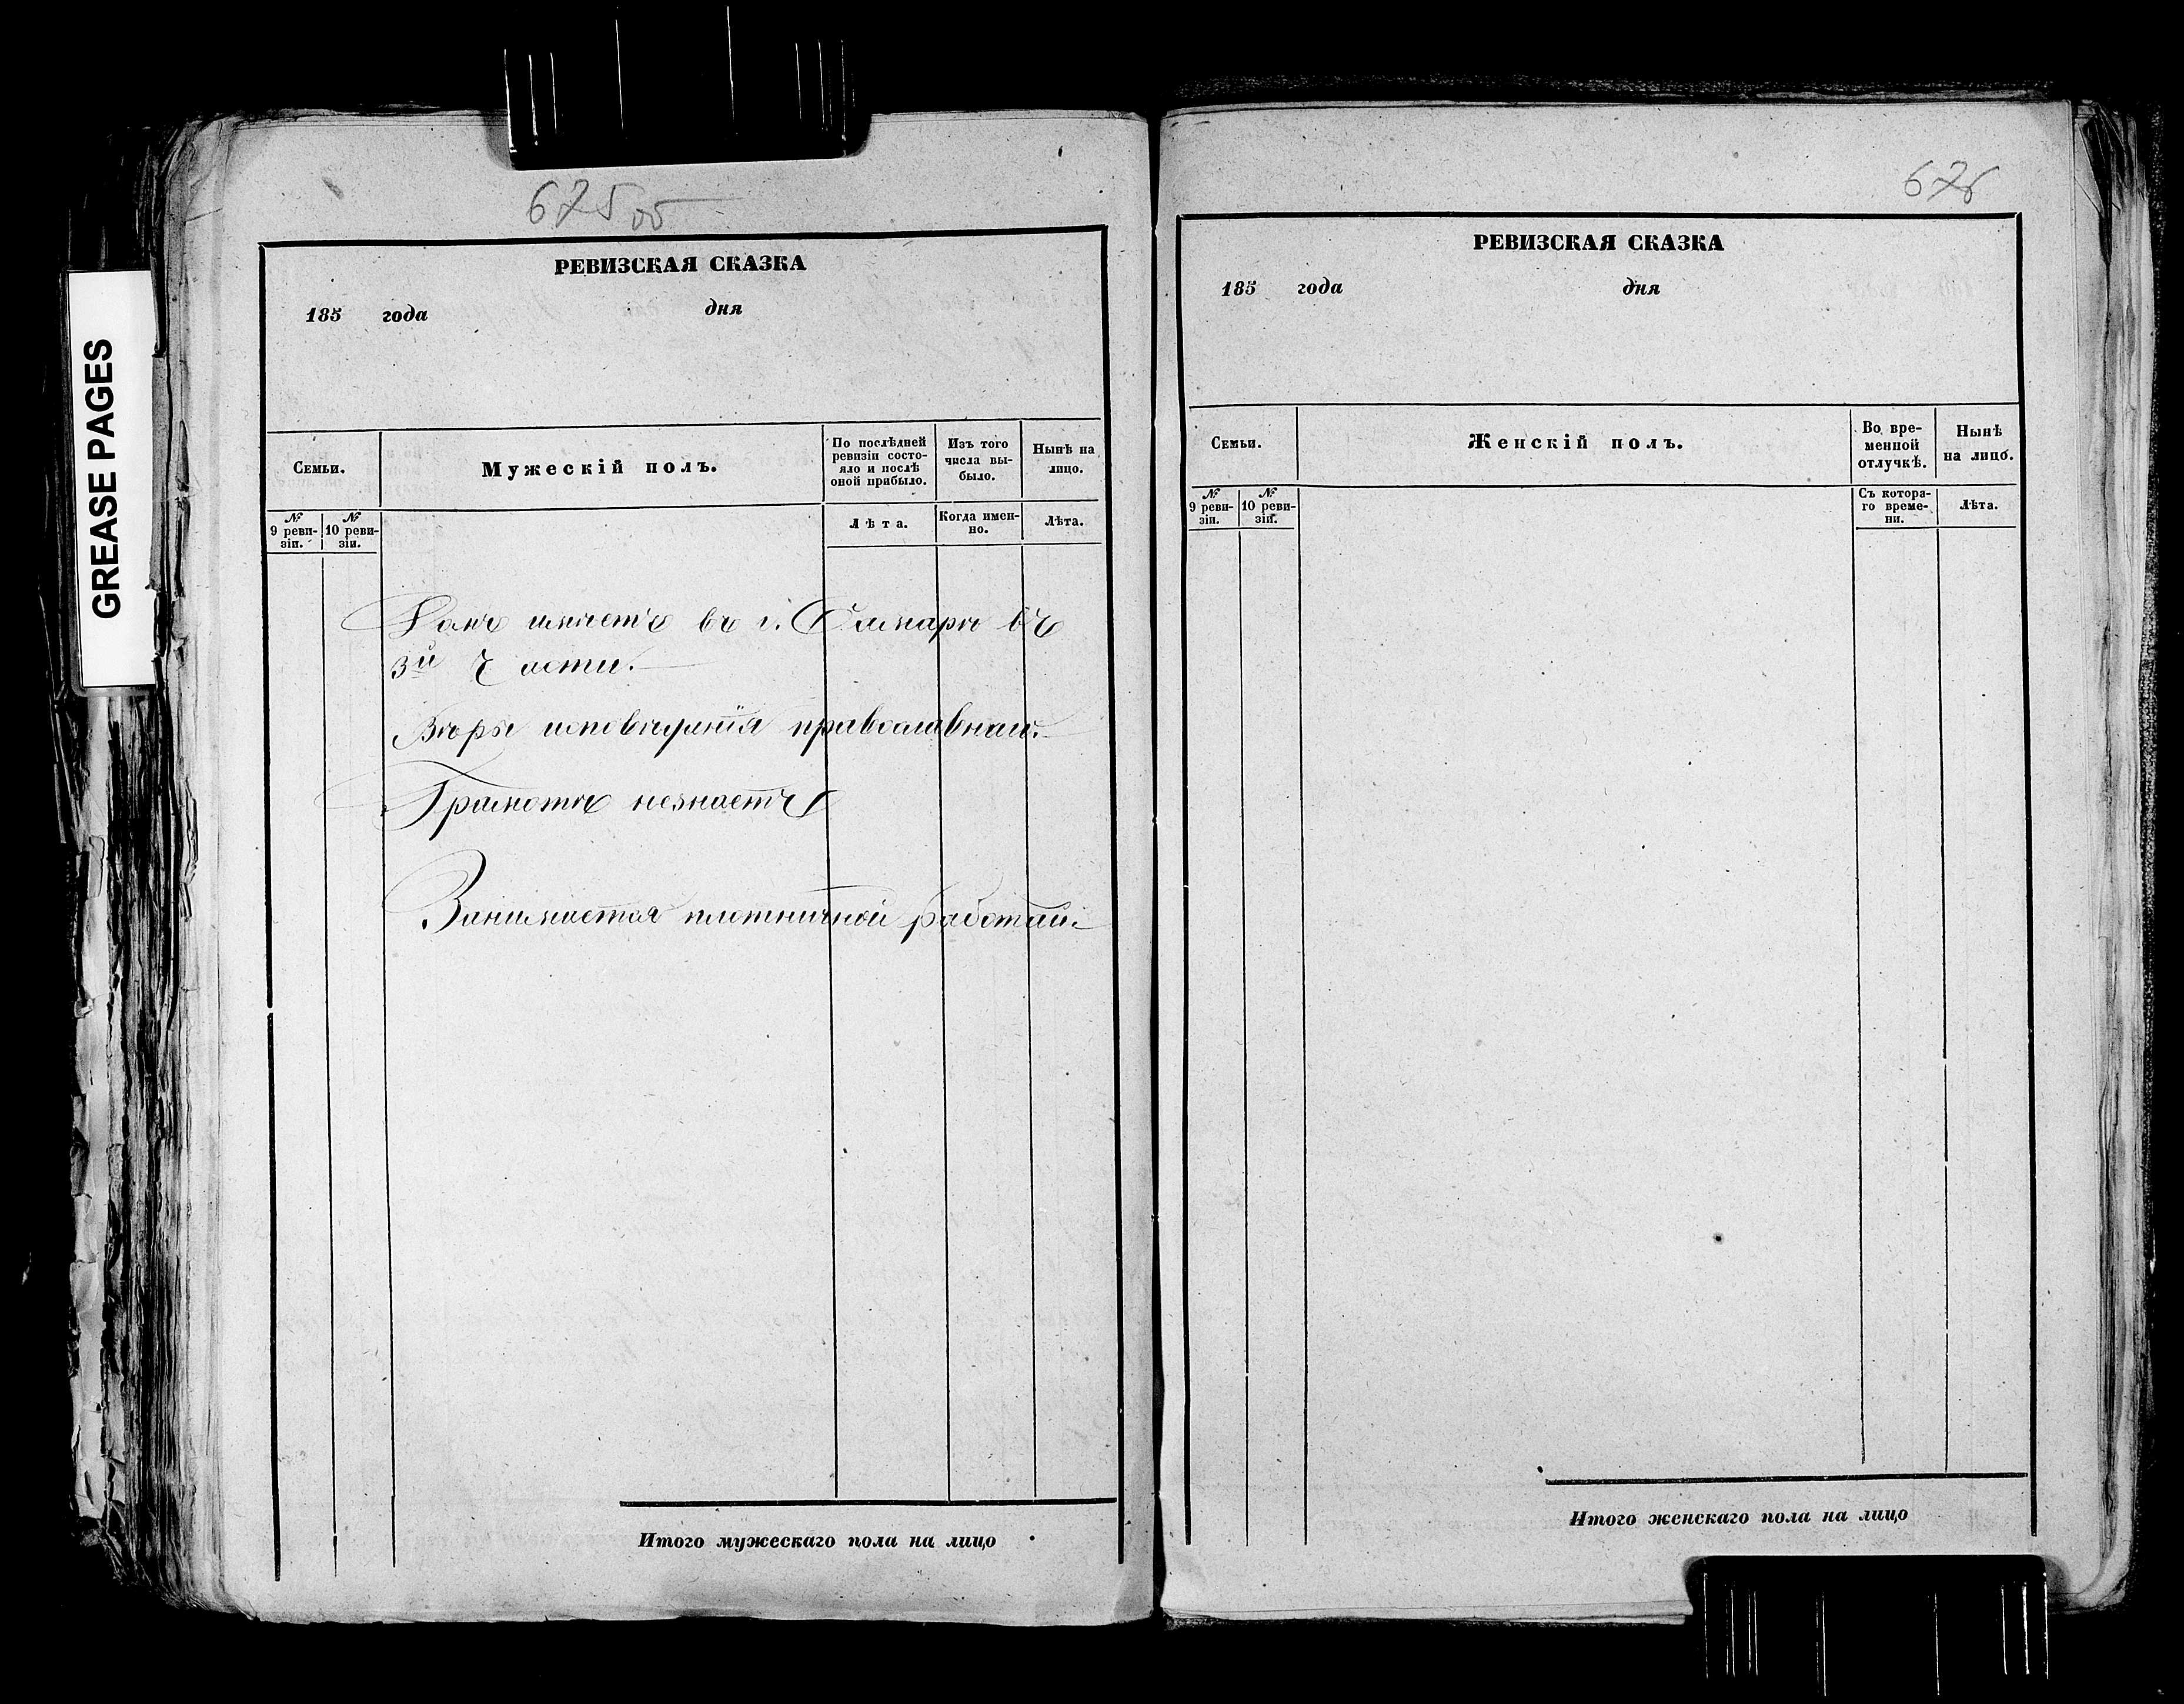 GREASE PAGES
675 об
РЕВИЗСКАЯ СКАЗКА
185 года дня
Семьи.
Мужескій полъ.
По послѣдней ревизіи состо-
яло и послѣ оной прибыло.
Изъ того числа вы-
было.
Нынѣ на лицо.
№ 9 реви-
зіи.
№ 10 реви-
зіи.
Лѣта.
Когда имен-
но.
Лѣта.
Домъ имѣетъ въ г. Самарѣ въ
3й части.
Вѣры исповѣданія православнаи.
Грамотѣ незнаетъ
Занимается плотничной работай.
Итого мужескаго пола на лицо
676
РЕВИЗСКАЯ СКАЗКА
185 года дня
Семьи.
Женскій полъ.
Во вре-
менной
отлучкѣ.
Нынѣ
на лицо.
№ 9 реви-
зіи.
№ 10 реви-
зіи.
Съ котора-
го време-
ни.
Лѣта.
Итого женскаго пола на лицо